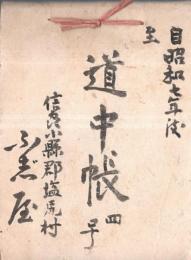 自昭和七年度
至
道中帳 四号
信濃小縣郡塩尻村
ふじ屋